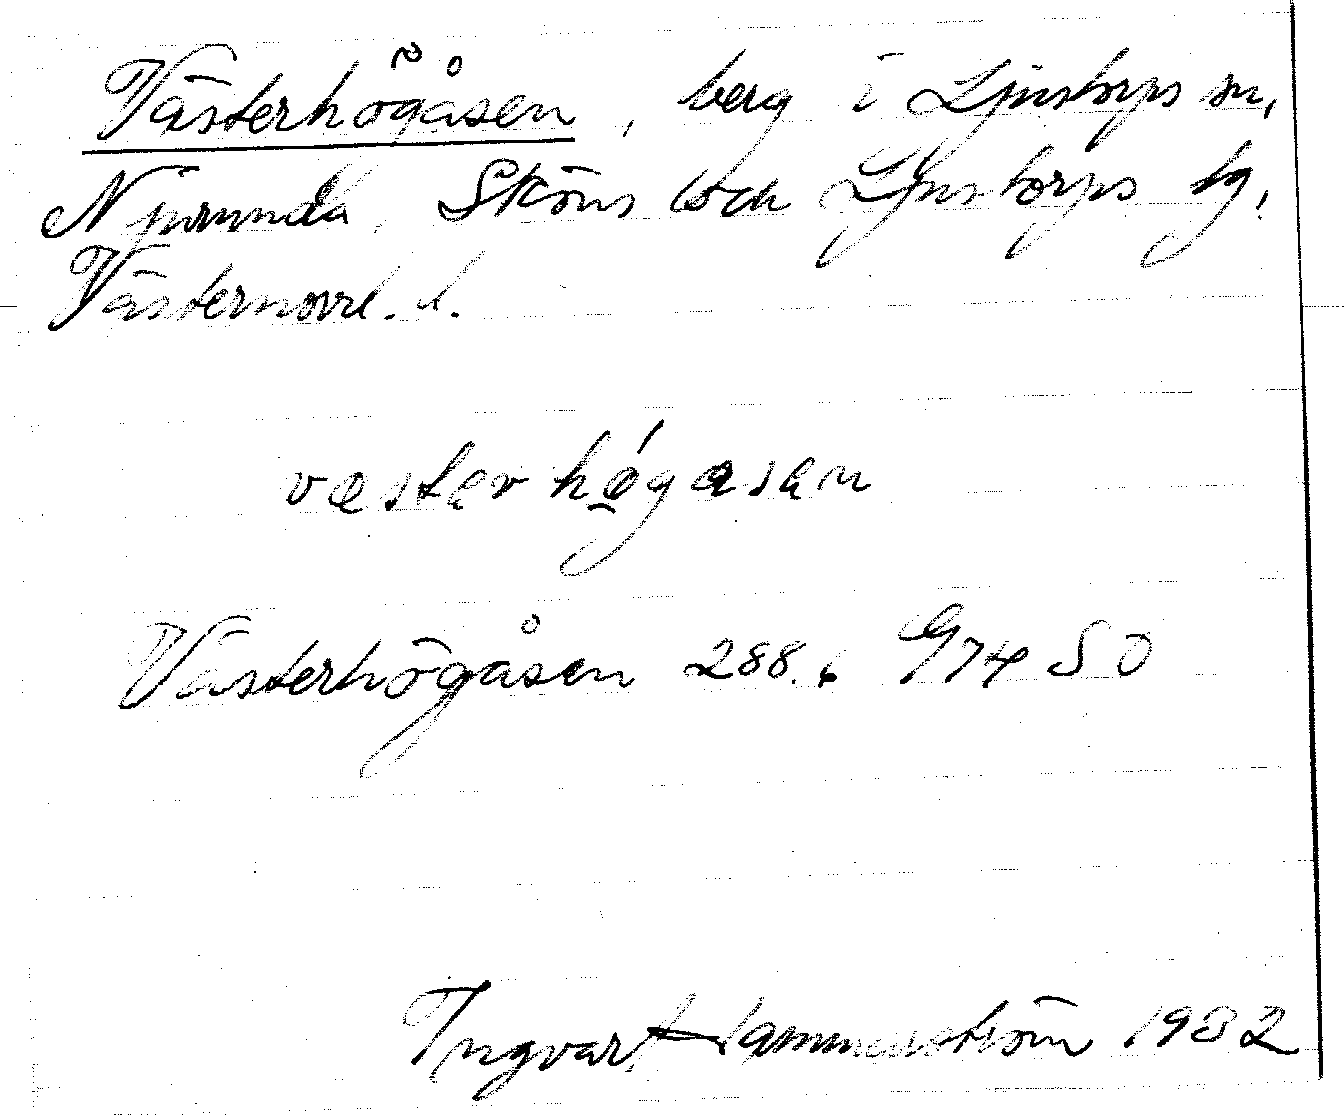 Västerhögåsen, berg i Ljustorps sn,
Njurunda, Sköns och Ljustorps tg,
Västernorrl. l.
västerhö́gasan
Västerhögåsen 288.6 G74 SO
Ingvart Hammarström 1932